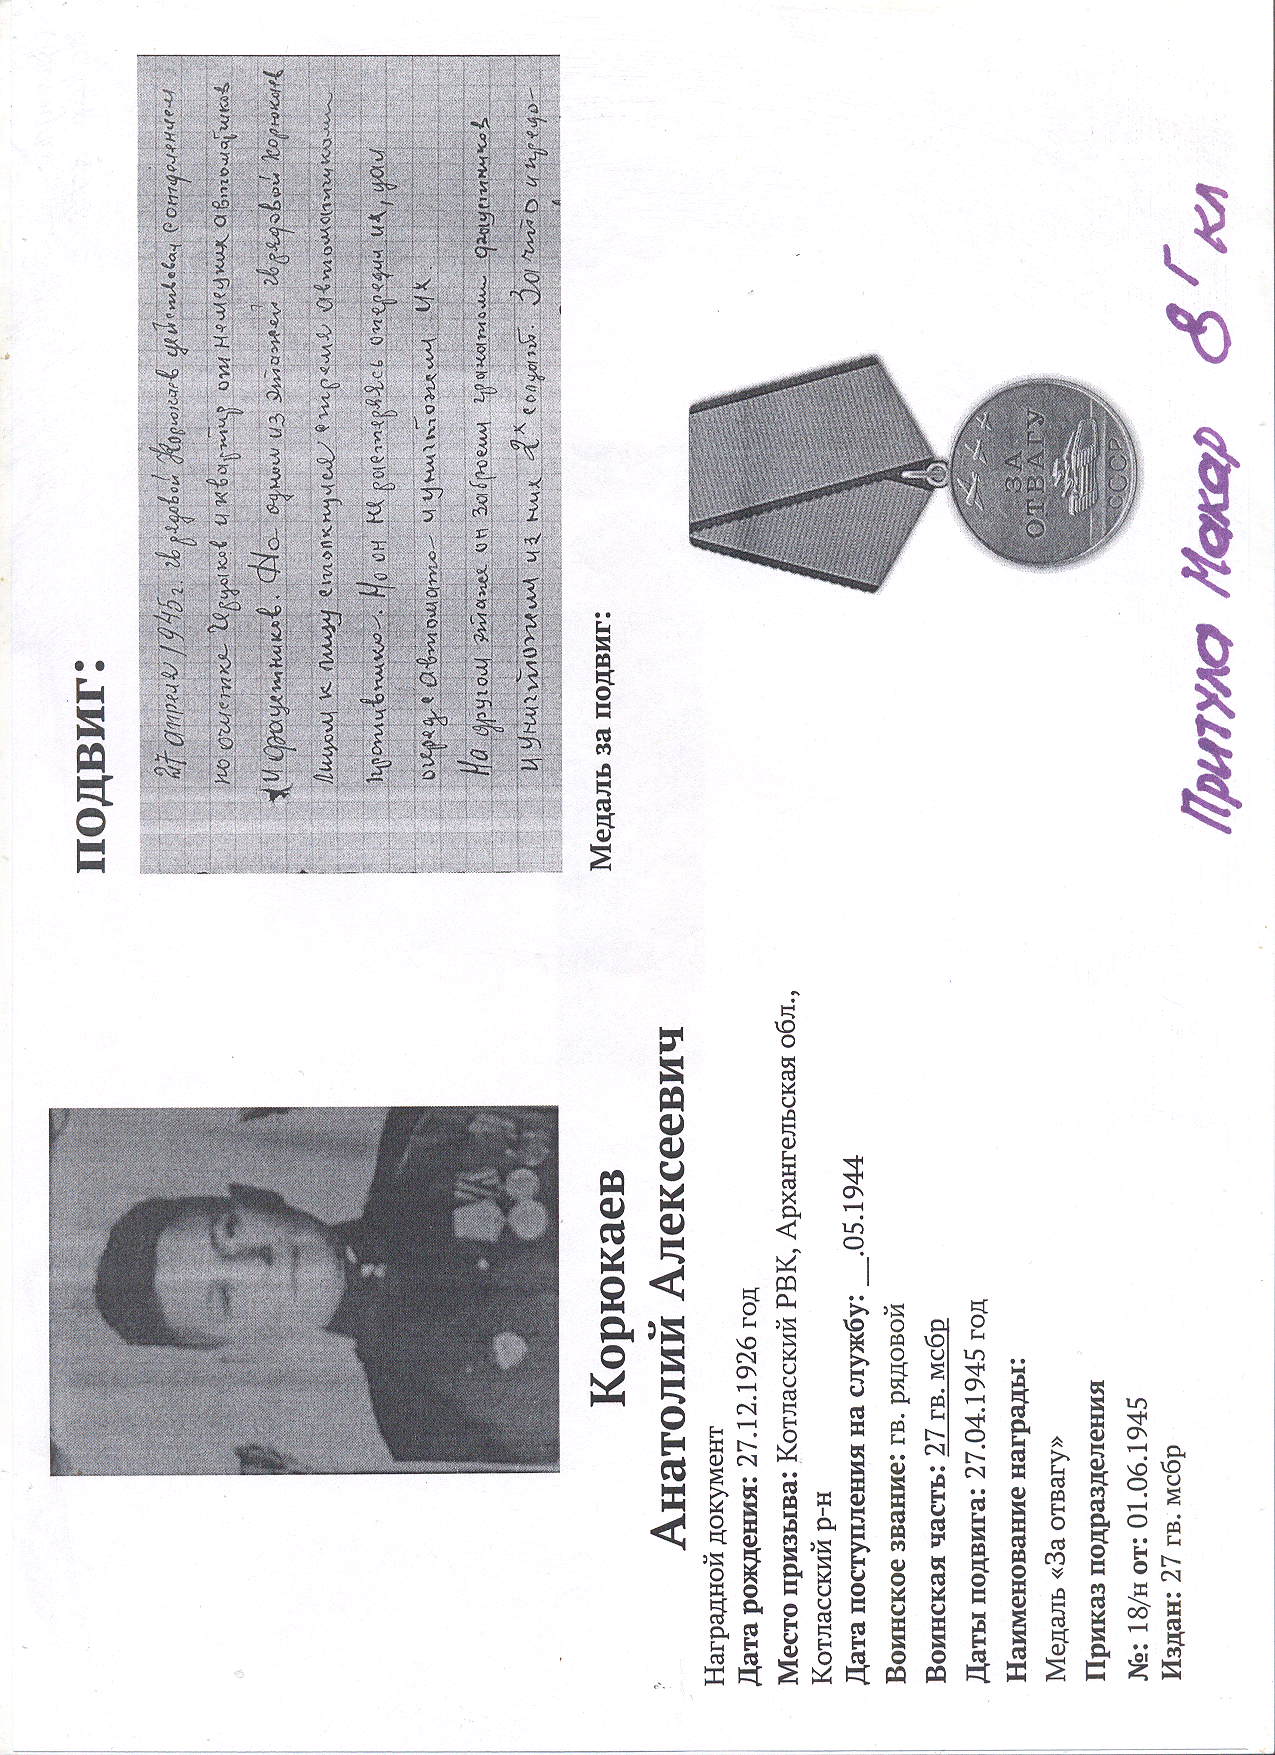 Корюкаев
Анатолий Алексеевич
Наградной документ
Дата рождения: 27.12.1926 год
Место призыва: Котласский РВК, Архангельская обл.,
Котласский р-н
Дата поступления на службу: __.05.1944
Воинское звание: гв. рядовой
Воинская часть: 27 гв. мсбр
Даты подвига: 27.04.1945 год
Наименование награды:
Медаль «За отвагу»
Приказ подразделения
№: 18/н от: 01.06.1945
Издан: 27 гв. мсбр
ПОДВИГ:
27 апреля 1945г. гв рядовой Корюкаев действовал с отделением
по очистке чердаков и квартир от немецких автоматчиков
и фаустников. На одном из этажей гв рядовой Корюкаев
лицом к лицу столкнулся с тремя автоматчиками
противника. Но он не растерялся опередил их, дал
очередь с автомата и уничтожил их.
На другом этаже он забросил гранатами фаустников
и уничтожил из них 2х солдат. За что и предо-
Медаль за подвиг:
ЗА
ОТВАГУ
СССР
Притула Макар 8 г кл